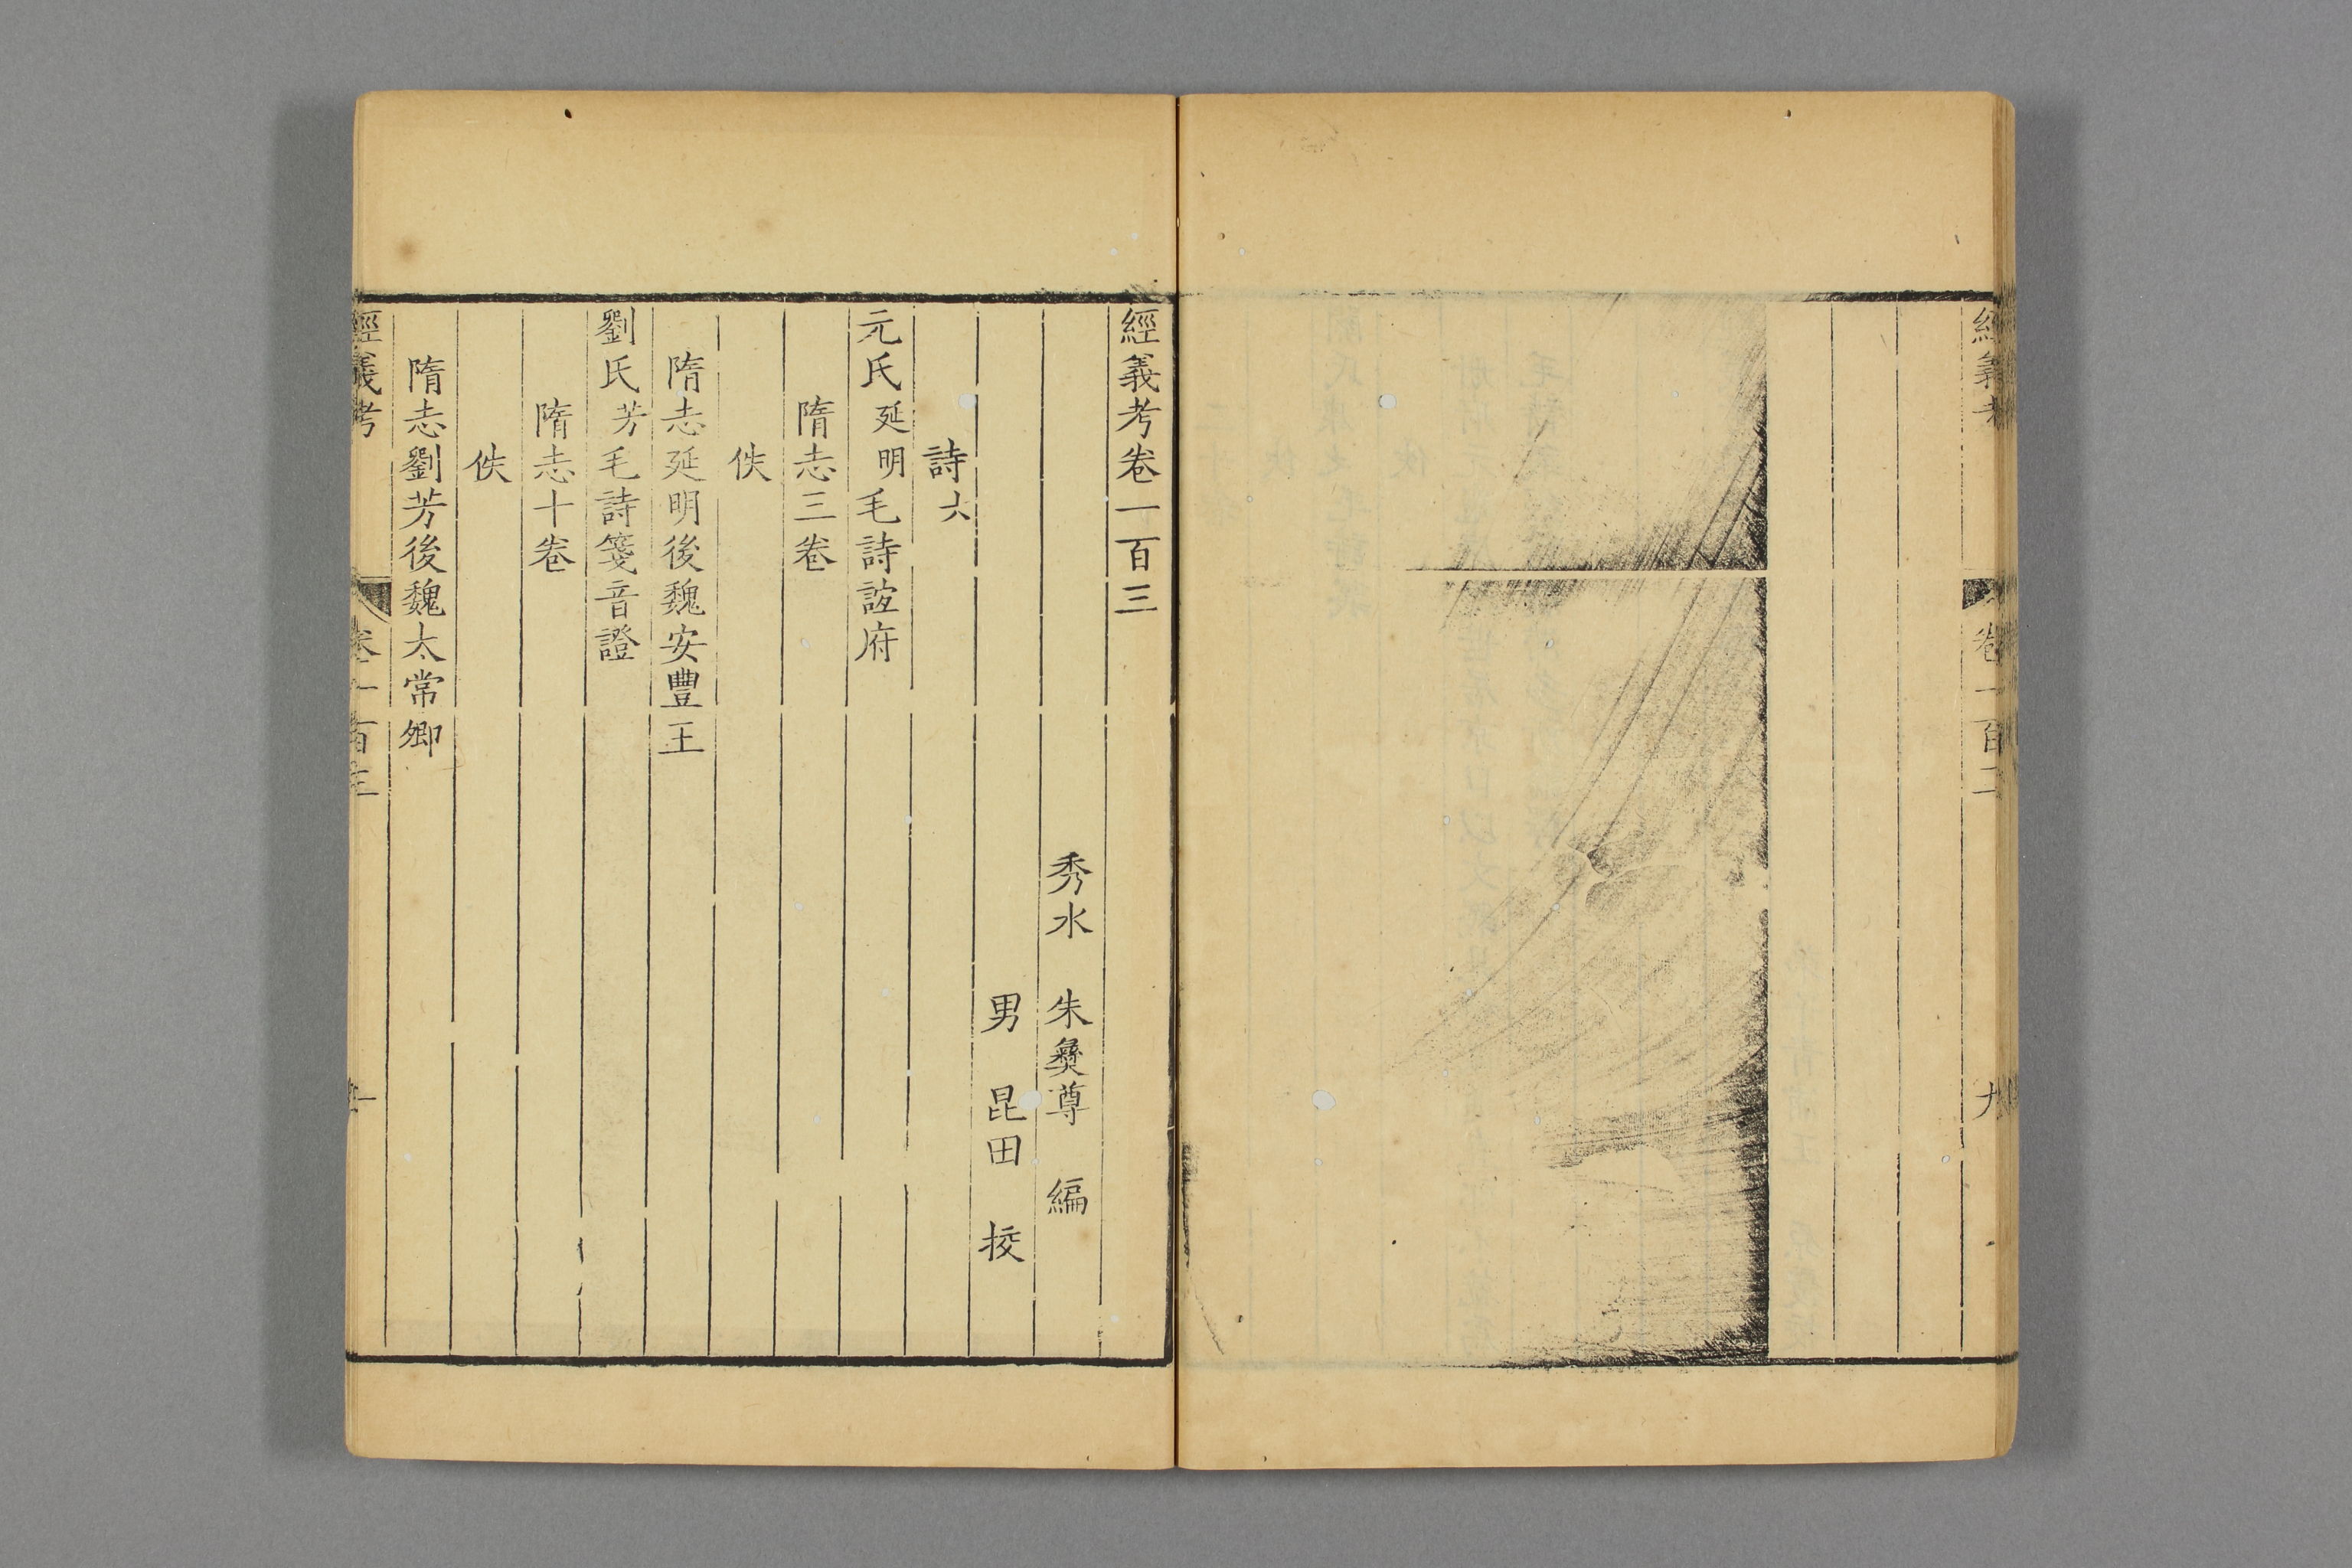 經義考 卷一百二 九
經義考卷一百三
秀水 朱彝尊 編
男 昆田 挍
詩六
元氏延明毛詩誼府
隋志三卷
佚
隋志延明後魏安豐王
劉氏芳毛詩箋音證
隋志十卷
佚
隋志劉芳後魏太常卿
經義考 卷一百三 一